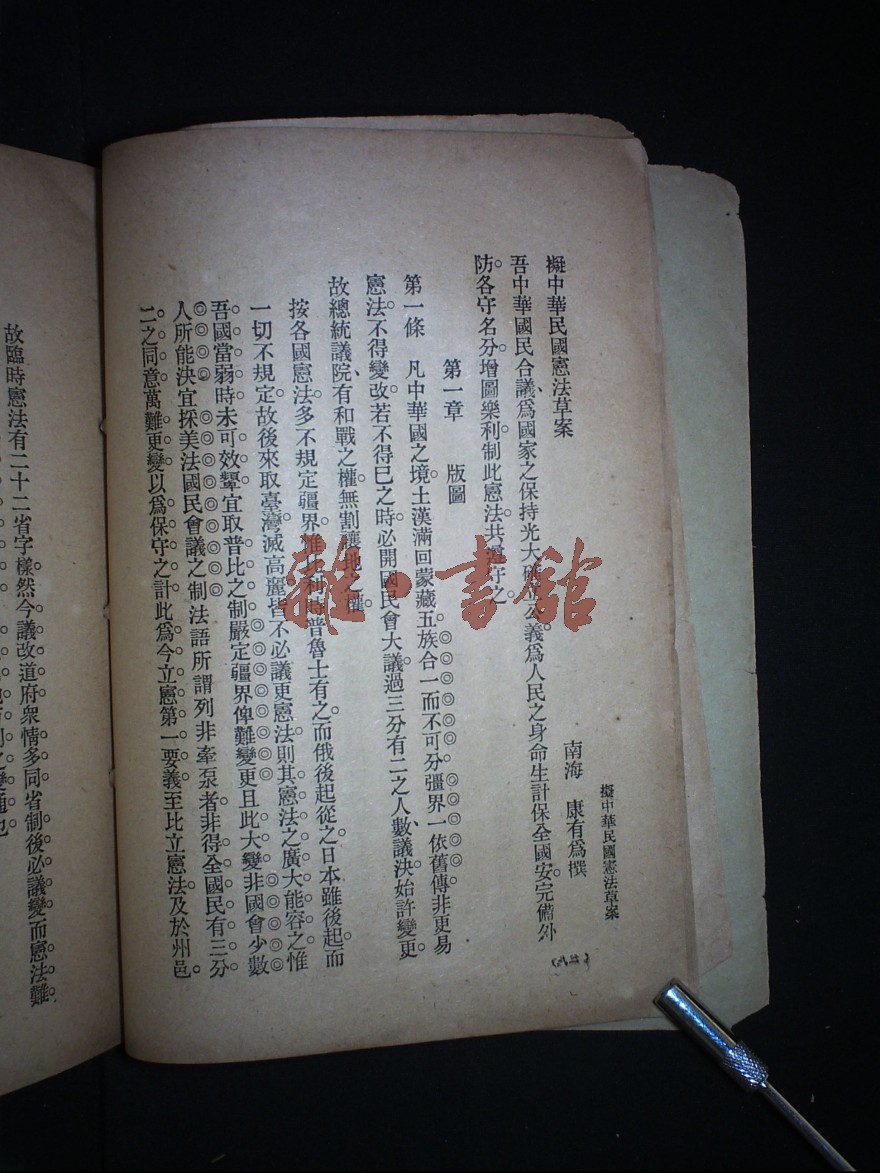 擬中華民國憲法草案
擬中華民國憲法草案
南海　康有爲撰
吾中華國民合議爲國家之保持光大公義爲人民之身命生計保全國安完備外
防各守名分增圖樂利制此憲法共遵守之
第一章　版圖
第一條　凡中華國之境土漢滿回蒙藏五族合一而不可分彊界一依舊傳非更易
憲法不得變改若不得巳之時必開國民會大議過三分有二之人數議決始許變更
故總統議院有和戰之權無割讓地之權
按各國憲法多不規定彊界惟比利時普魯士有之而俄後起從之日本雖後起而
一切不規定故後來取臺灣滅高麗皆不必議更憲法則其憲法之廣大能容之惟
吾國當弱時未可效顰宜取普比之制嚴定彊界俾難變更且此大變非國會少數
人所能決宜採美法國民會議之制法語所謂列非牽泵者非得全國民有三分
二之同意萬難更變以爲保守之計此爲今立憲第一要義至比立憲法及於州邑
故臨時憲法有二十二省字樣然今議改道府衆情多同省制後必議變而憲法難
雜·書館